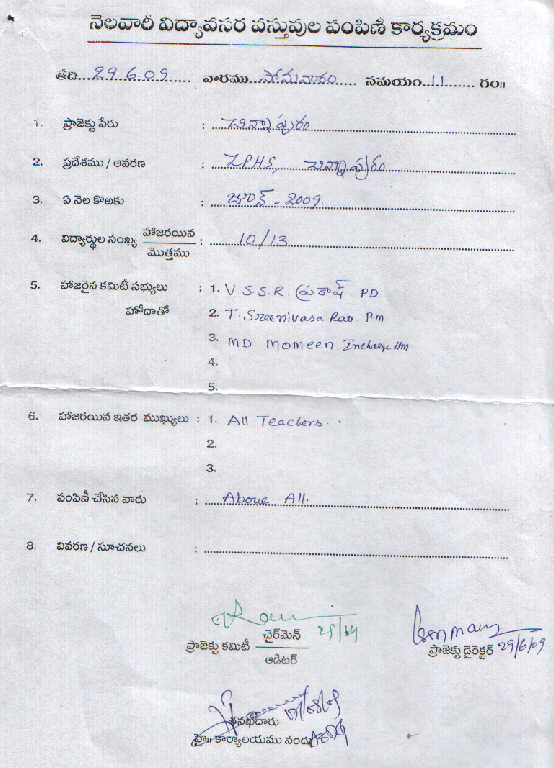 నెలవారీ విద్యావసర వస్తువుల పంపిణీ కార్యక్రమం
తేది...29.6.09...... వారము...సోమవారం...... సమయం..11...... గం॥
1. ప్రాజెక్టు పేరు : చిన్నాపురం
2. ప్రదేశము / ఆవరణ : ZPHS, చిన్నాపురం
3. ఏ నెల కొఱకు : జూన్ - 2009
4. విద్యార్థుల సంఖ్య హాజరయిన / మొత్తము : 10/13
5. హాజరైన కమిటీ సభ్యులు : 1. V S S R ప్రకాష్ PD
హోదాతో 2. T. Sreenivasa Rao Pm
3. MD Momeen Incharge Hm
4.
5.
6. హాజరయిన ఇతర ముఖ్యులు : 1. All Teachers..
2.
3.
7. పంపిణీ చేసిన వారు : Above All.
8 వివరణ / సూచనలు :
ప్రాజెక్టు కమిటీ చైర్‌మెన్ / ఆడిటర్
ప్రాజెక్టు డైరెక్టర్ 29/6/09
కార్యాలయము నందు